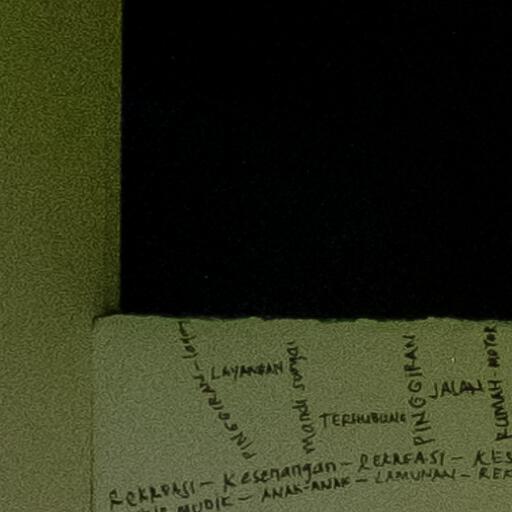 PINGGIRAN
LAYANGAN
mandi sungai
TERHUBUNG
PINGGIRAN
JALAN
RUMAH-MOTOR
REKREASI - Kesenangan - REKREASI - KES
MUDIK - ANAK-ANAK - LAMUNAN - REK